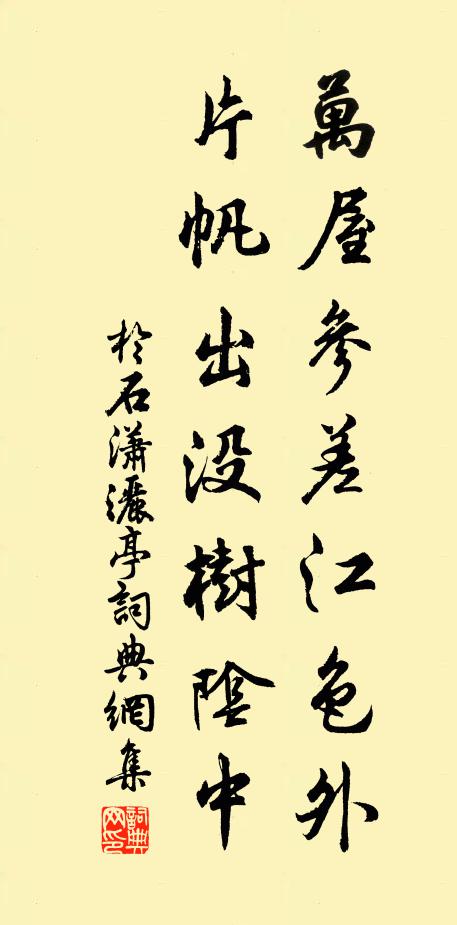 萬屋參差江色外
片帆出没樹陰中
於石瀟灑亭詞典網集
詞典
网印